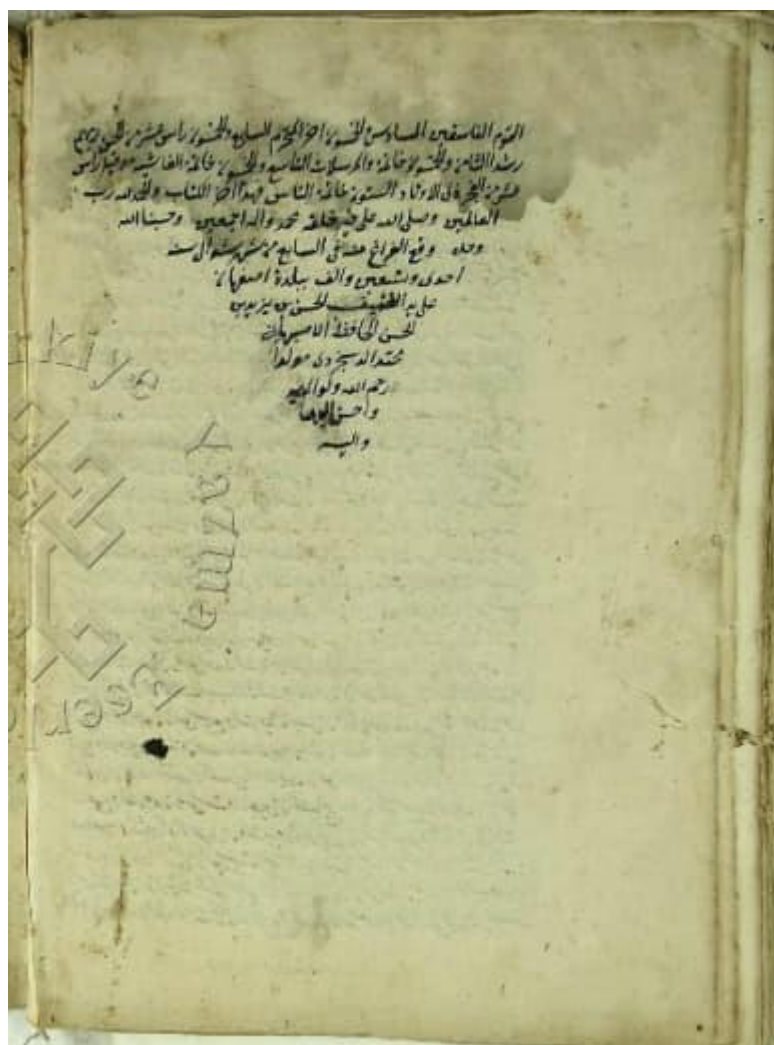 القوم الفاسقين السادس والخمسون اخر المجرم السابع والخمسون رأس عشر من الجن
رشدا الثامن والخمسون خاتمة والمرسلات التاسع والخمسون خاتمة الغاشية موفيا رأس
عشر من الفجر في الاوتاد الستون خاتمة الناس فهذا اخر الكتاب والحمد لله رب
العالمين وصلى الله على خير خلقه محمد واله اجمعين وحسبنا الله
وحده وقع الفراغ منه في السابع من شهر شوال سنة
احدى وتسعين والف ببلدة اصفهان
على يد الضعيف الحسن بن يزيد بن
الحسن الحافظ الاصبهاني
محتدا مولدا
رحم الله
واحسن اليهما
واليه
Türkiye
Yazma
Eserler